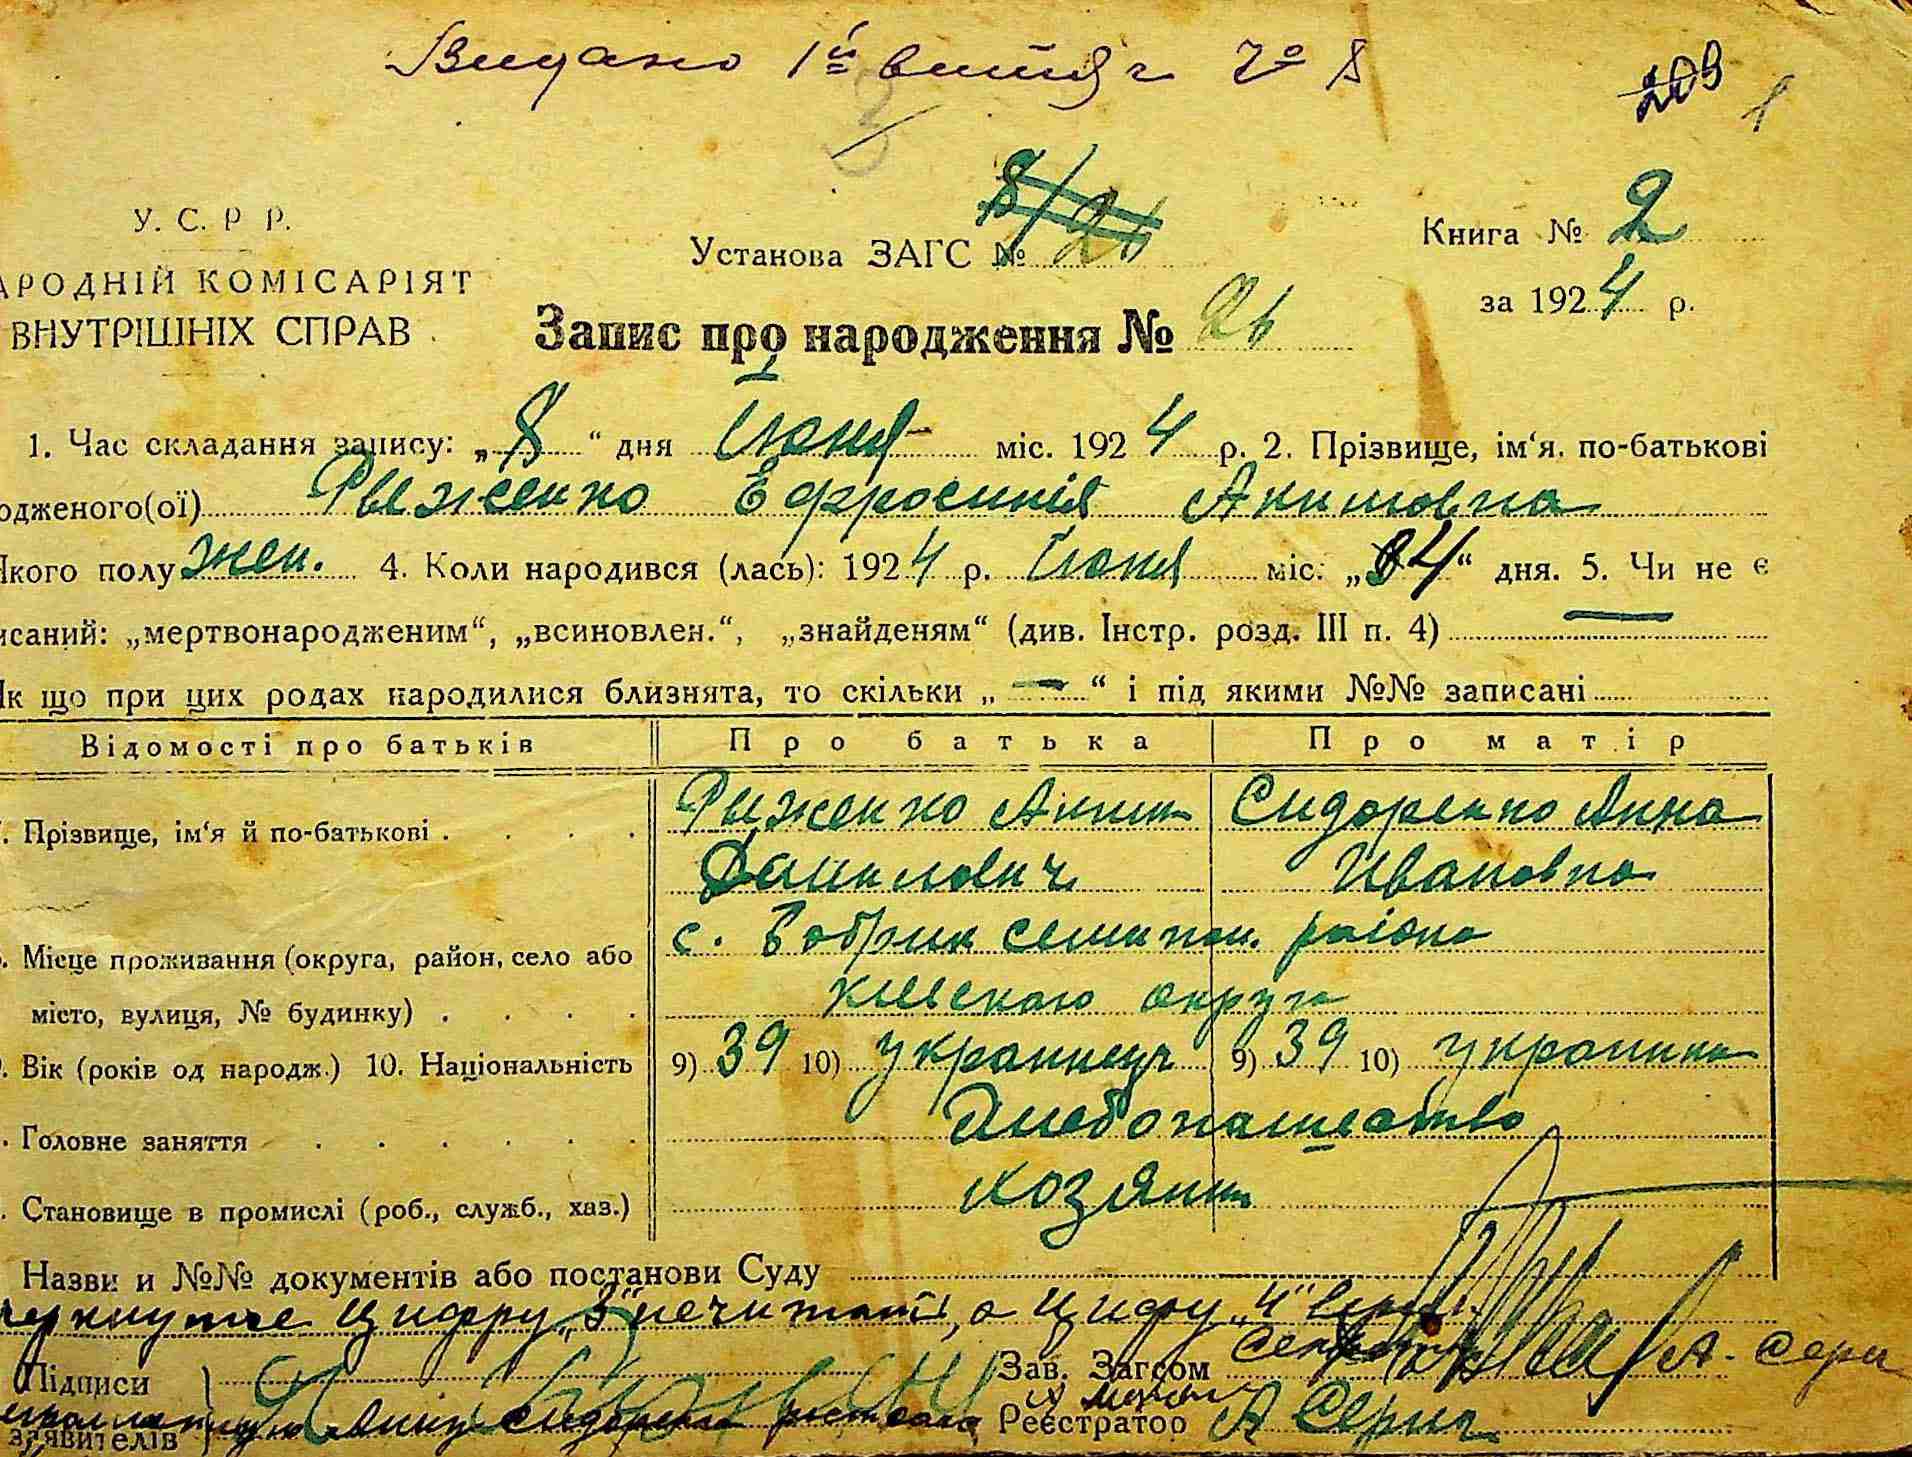 Видано 1й витяг
203 1
У. С. Р Р.
АРОДНІЙ КОМІСАРІЯТ
ВНУТРІШНІХ СПРАВ
Установа ЗАГС №
Книга № 2
за 1924 р.
Запис про народження № 26
1. Час складання запису: „8“ дня Июня міс. 1924 р. 2. Прізвище, ім‘я, по-батькові
одженого(ої) Рыженко Ефросинія Акимовна
Якого полу жен. 4. Коли народився (лась): 1924 р. Июня міс. „4“ дня. 5. Чи не є
исаний: „мертвонародженим“, „всиновлен.“, „знайденям“ (див. Інстр. розд. III п. 4) —
Як що при цих родах народилися близнята, то скільки „—“ і під якими №№ записані
Відомості про батьків Про батька Про матір
. Прізвище, ім‘я й по-батькові . . . . Рыженко Аким Сидоренко Анна
Данилович Ивановна
. Місце проживання (округа, район, село або с. Бобрик семипол. района
місто, вулиця, № будинку) . . . . киевского округа
. Вік (років од народж.) 10. Національність 9) 39 10) украинец 9) 39 10) украинка
. Головне заняття . . . . . . Хлебопашество
. Становище в промислі (роб., служб., хаз.) хозяин
Назви и №№ документів або постанови Суду
цифру „3“ не читати, а цифру „4“
Підписи Зав. Загсом
заявителів Реєстратор А Серич